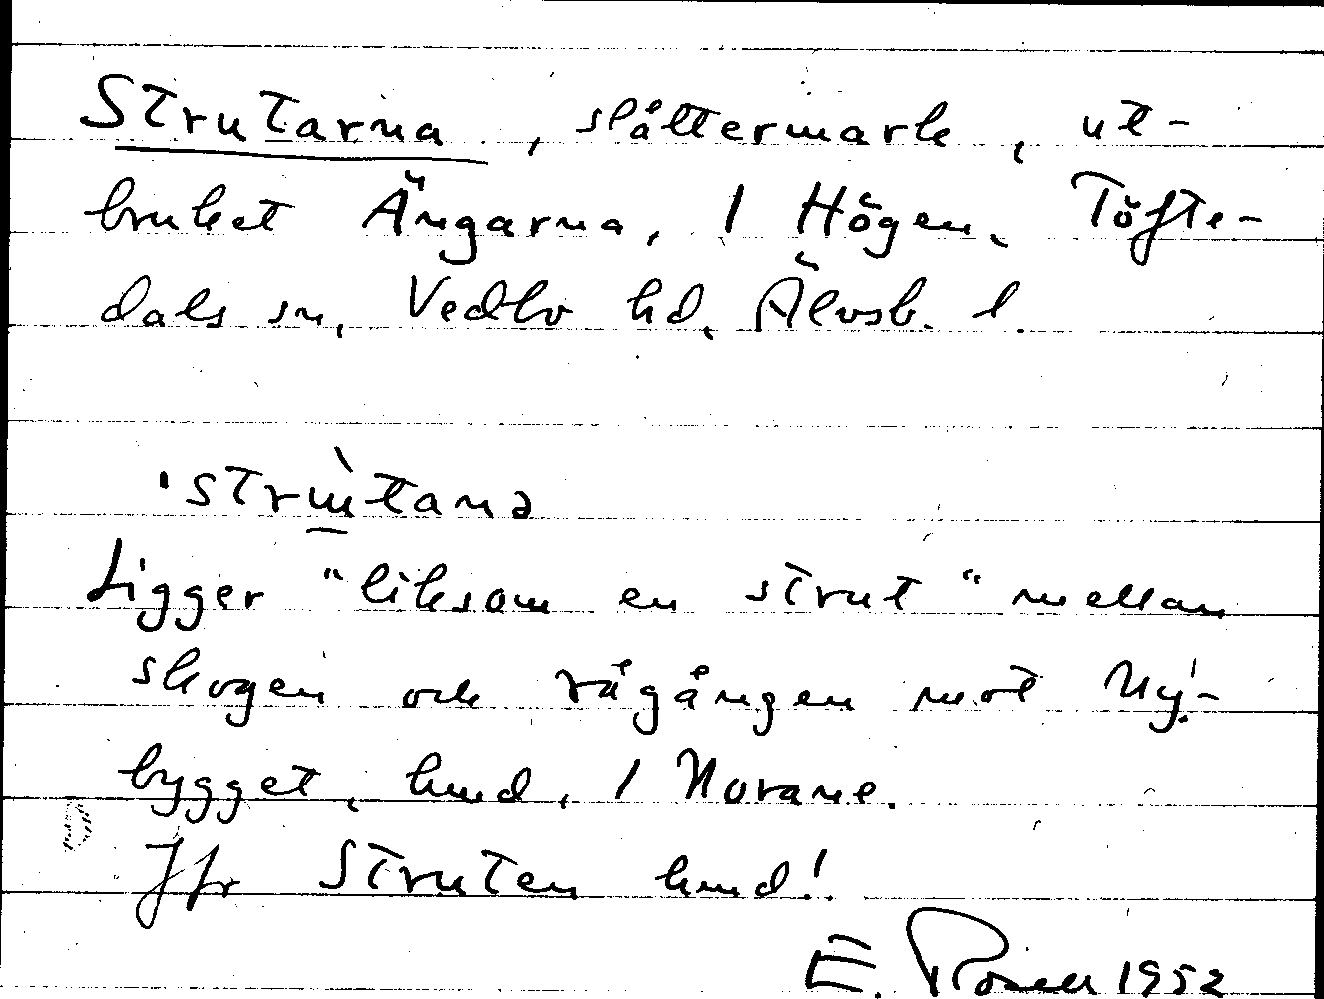 Strutarna, slåttermark, ut-
bruket Ängarna, 1 Högen, Töfte-
dals sn, Vedbo hd, Älvsb. l.
'strɯ̀tanə
Ligger "liksom en strut" mellan
skogen och rågången mot Ny-
bygget, hmd, 1 Norane.
Jfr Struten hmd!
E. Rosell 1952